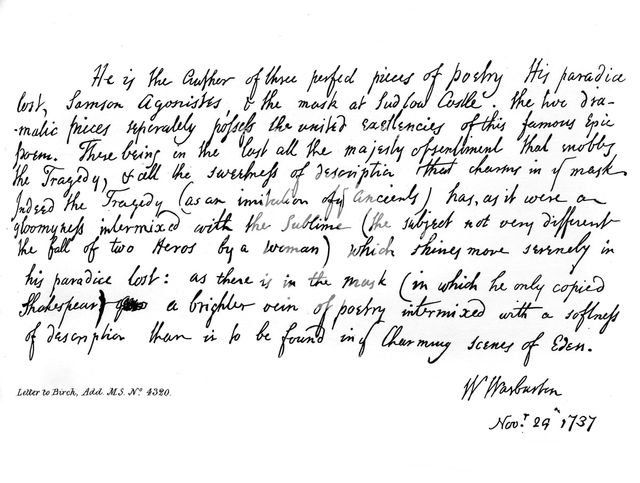 He is the Author of three perfect pieces of poetry His paradice
lost, Samson Agonistes, & the mask at Ludlow Castle. the two dra-
-matic pieces seperately possess the united excellencies of this famous Epic
poem. There being in the last all the majesty of sentiment that enobles
the Tragedy, & all the sweetness of description that charms in yͤ mask
Indeed the Tragedy (as an imitation of yͤ Ancients) has, as it were a
gloomyness intermixed with the Sublime (the subject not very different
the fall of two Heros by a woman) which shines more serenely in
his paradice lost: as there is in the mask (in which he only copied
Shakespear) a brighter vein of poetry intermixed with a softness
of description than is to be found in yͤ Charming scenes of Eden.
W Warburton
Novͬ 29 1737
Letter to Birch, Add. M.S. Nͦ 4320.